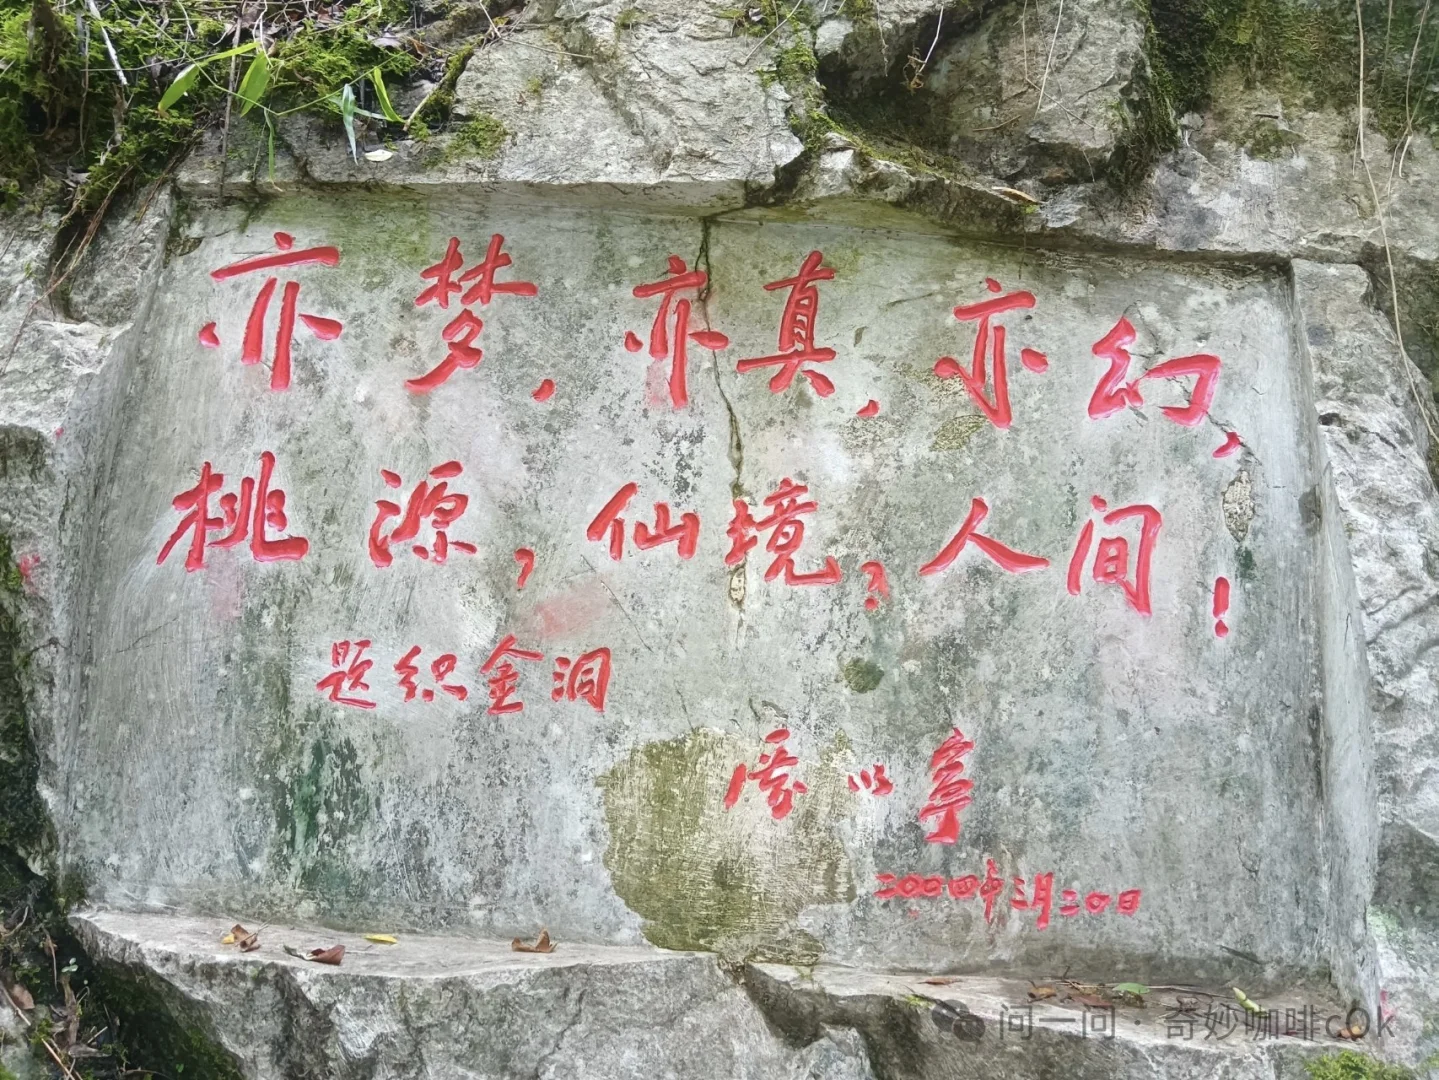 亦梦，亦真，亦幻，
桃源，仙境？人间！
题织金洞
以
二〇〇四年三月二十日
问一问·奇妙咖啡cOk